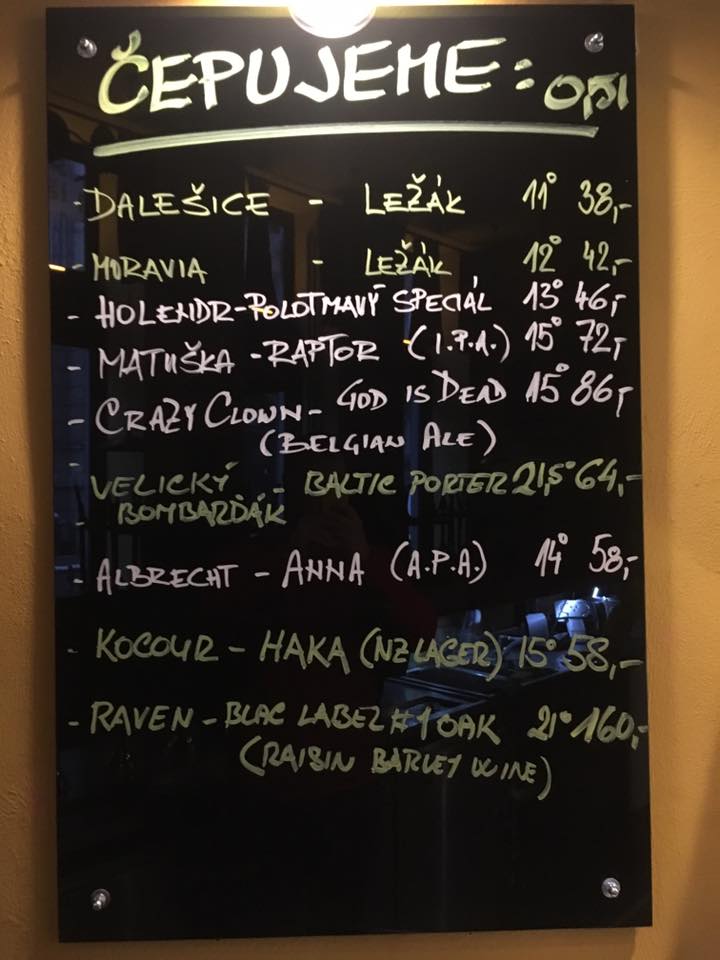 ČEPUJEME: 0,5l
- DALEŠICE - LEŽÁK 11° 38,-
- MORAVIA - LEŽÁK 12° 42,-
- HOLENDR-POLOTMAVÝ SPECIÁL 13° 46,-
- MATUŠKA - RAPTOR (I.P.A.) 15° 72,-
- CRAZY CLOWN - GOD IS DEAD 15° 86,-
(BELGIAN ALE)
- VELICKÝ - BALTIC PORTER 21,5° 64,-
- BOMBARĎÁK
- ALBRECHT - ANNA (A.P.A.) 14° 58,-
- KOCOUR - HAKA (NZ LAGER) 15° 58,-
- RAVEN - BLAC LABEL #1 OAK 21° 160,-
(RAISIN BARLEY WINE)